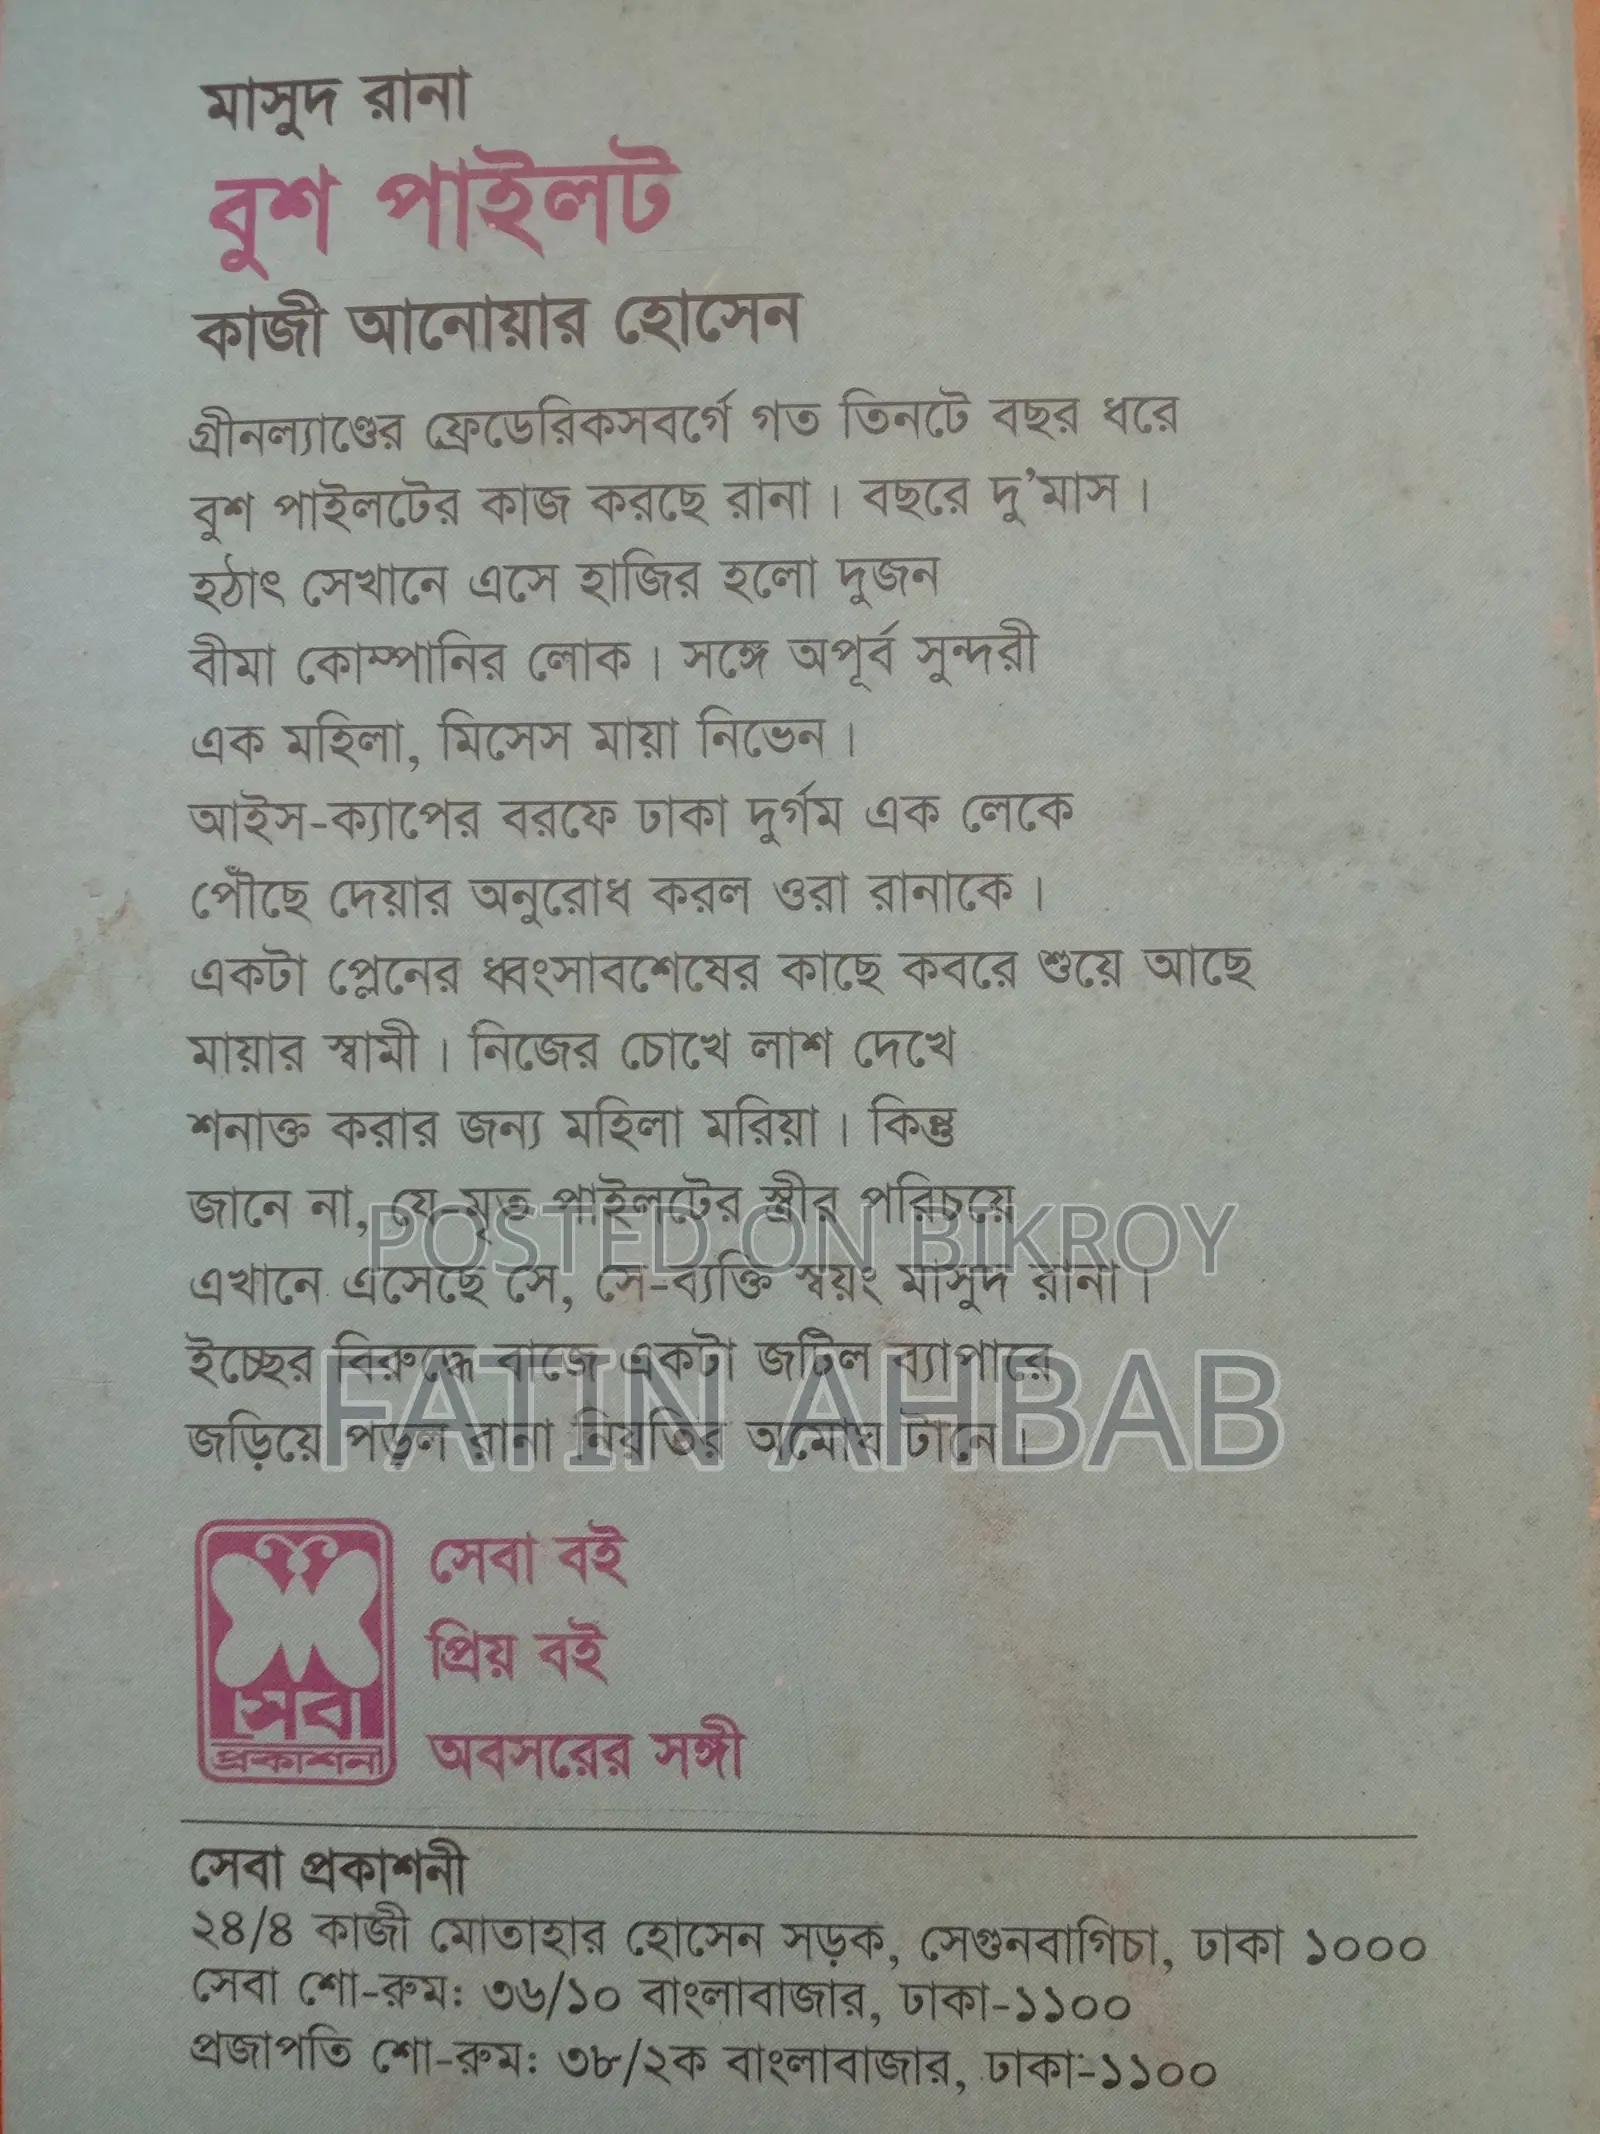 মাসুদ রানা
বুশ পাইলট
কাজী আনোয়ার হোসেন
গ্রীনল্যাণ্ডের ফ্রেডেরিকসবর্গে গত তিনটে বছর ধরে
বুশ পাইলটের কাজ করছে রানা। বছরে দু’মাস।
হঠাৎ সেখানে এসে হাজির হলো দুজন
বীমা কোম্পানির লোক। সঙ্গে অপূর্ব সুন্দরী
এক মহিলা, মিসেস মায়া নিভেন।
আইস-ক্যাপের বরফে ঢাকা দুর্গম এক লেকে
পৌঁছে দেয়ার অনুরোধ করল ওরা রানাকে।
একটা প্লেনের ধ্বংসাবশেষের কাছে কবরে শুয়ে আছে
মায়ার স্বামী। নিজের চোখে লাশ দেখে
শনাক্ত করার জন্য মহিলা মরিয়া। কিন্তু
জানে না, যে-মৃত পাইলটের স্ত্রীর পরিচয়ে
POSTED ON BIKROY
এখানে এসেছে সে, সে-ব্যক্তি স্বয়ং মাসুদ রানা।
ইচ্ছের বিরুদ্ধে বাজে একটা জটিল ব্যাপারে
FATIN AHBAB
জড়িয়ে পড়ল রানা নিয়তির অমোঘ টানে।
সেবা বই
প্রিয় বই
অবসরের সঙ্গী
সেবা
প্রকাশনী
সেবা প্রকাশনী
২৪/৪ কাজী মোতাহার হোসেন সড়ক, সেগুনবাগিচা, ঢাকা ১০০০
সেবা শো-রুম: ৩৬/১০ বাংলাবাজার, ঢাকা-১১০০
প্রজাপতি শো-রুম: ৩৮/২ক বাংলাবাজার, ঢাকা-১১০০